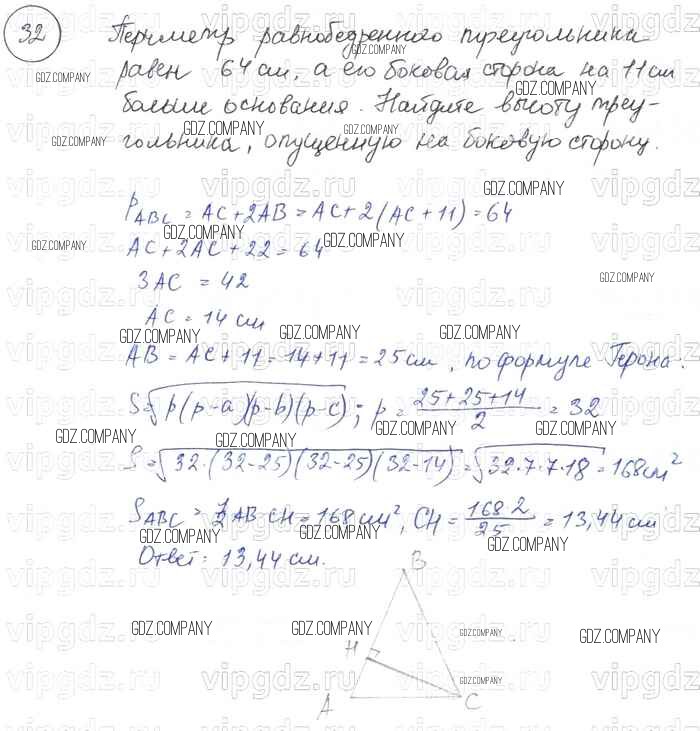 32 Периметр равнобедренного треугольника
равен 64 см, а его боковая сторона на 11 см
больше основания. Найдите высоту треу-
гольника, опущенную на боковую сторону.
P_ABC = AC + 2AB = AC + 2(AC + 11) = 64
AC + 2AC + 22 = 64
3AC = 42
AC = 14 см
AB = AC + 11 = 14 + 11 = 25 см, по формуле Герона:
S = √(p(p-a)(p-b)(p-c)); p = (25+25+14)/2 = 32
S = √(32·(32-25)(32-25)(32-14)) = √(32·7·7·18) = 168 см²
S_ABC = 1/2 AB·CH = 168 см², CH = 168·2/25 = 13,44 см
Ответ: 13,44 см.
B
H
A C
GDZ.COMPANY
vipgdz.ru